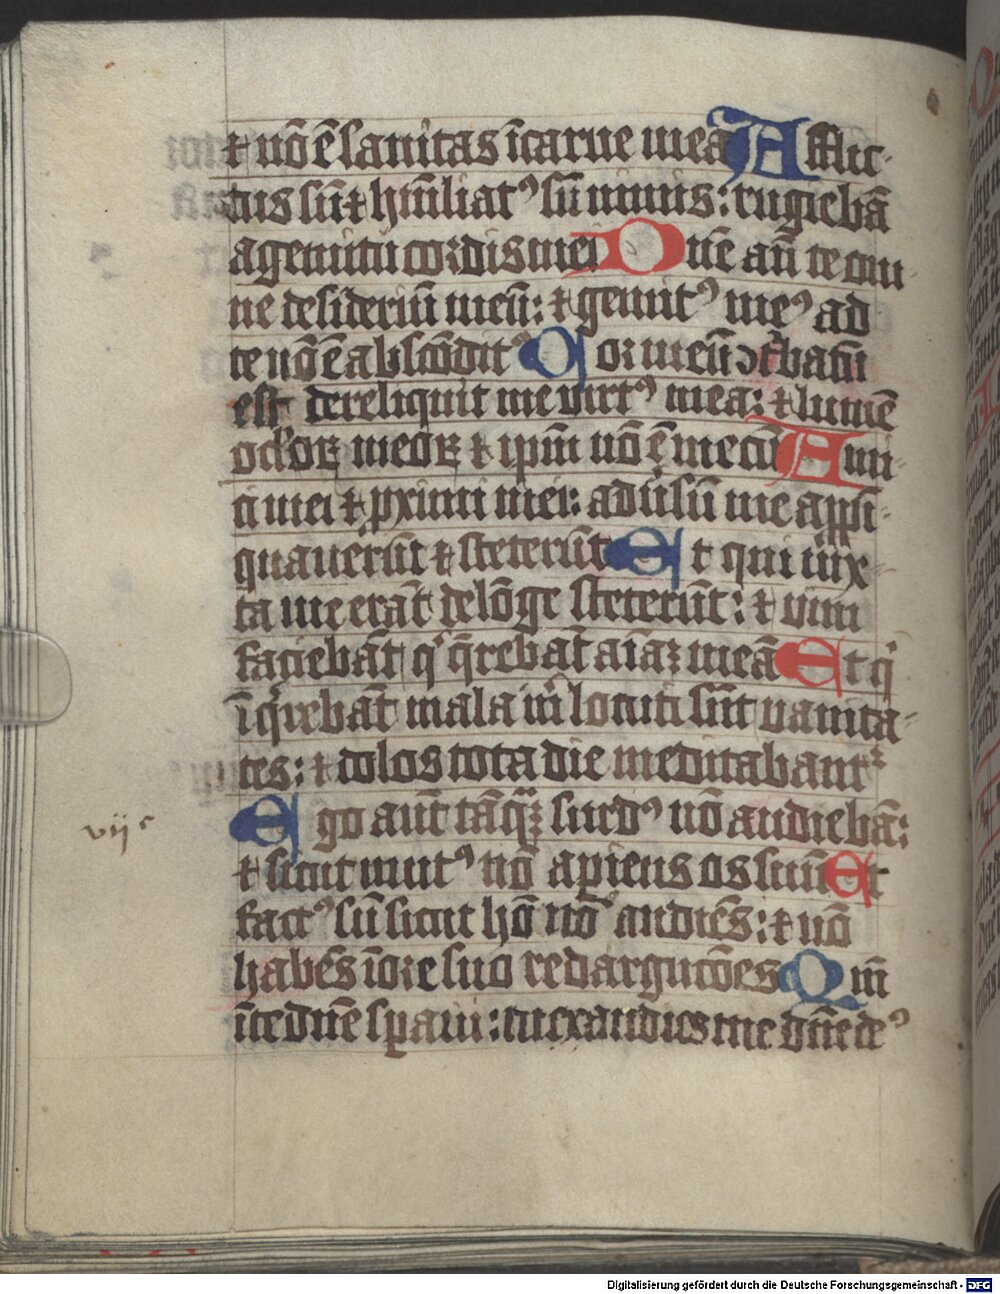 ⁊ nō ē sanitas ī carne mea Afflic-
tus sū ⁊ hūiliatꝰ sū nimis: rugiebā
a gemitu cordis mei Dn̄e an̄ te om-
ne desideriū meū: ⁊ gemitꝰ meꝰ ad
te nō ē abscōditꝰ Cor meū ↄturbatū
est dereliquit me virtꝰ mea: ⁊ lumē
oclōꝝ meoꝝ ⁊ ip̄m nō ē mecū Ami-
ci mei ⁊ ꝓximi mei: adūsū me app̄i-
quauerūt ⁊ steterūt Et qui iux-
ta me erāt de lōge steterūt: ⁊ vim
faciebāt qͥ q̄rebāt aīaꝫ meā Et qͥ
īqͥrebāt mala m̄ locuti sūt vanita-
tes: ⁊ dolos tota die meditabantᷣ
Ego aūt tāqꝫ surdꝰ nō audiebā:
⁊ sicut mutꝰ nō apiens os suū Et
factꝰ sū sicut hō nō audiēs: ⁊ nō
habēs ī ore suo redargutōes Qm̄
ī te dn̄e spaui: tu exaudies me dn̄e deꝰ
vij c
Digitalisierung gefördert durch die Deutsche Forschungsgemeinschaft - DFG